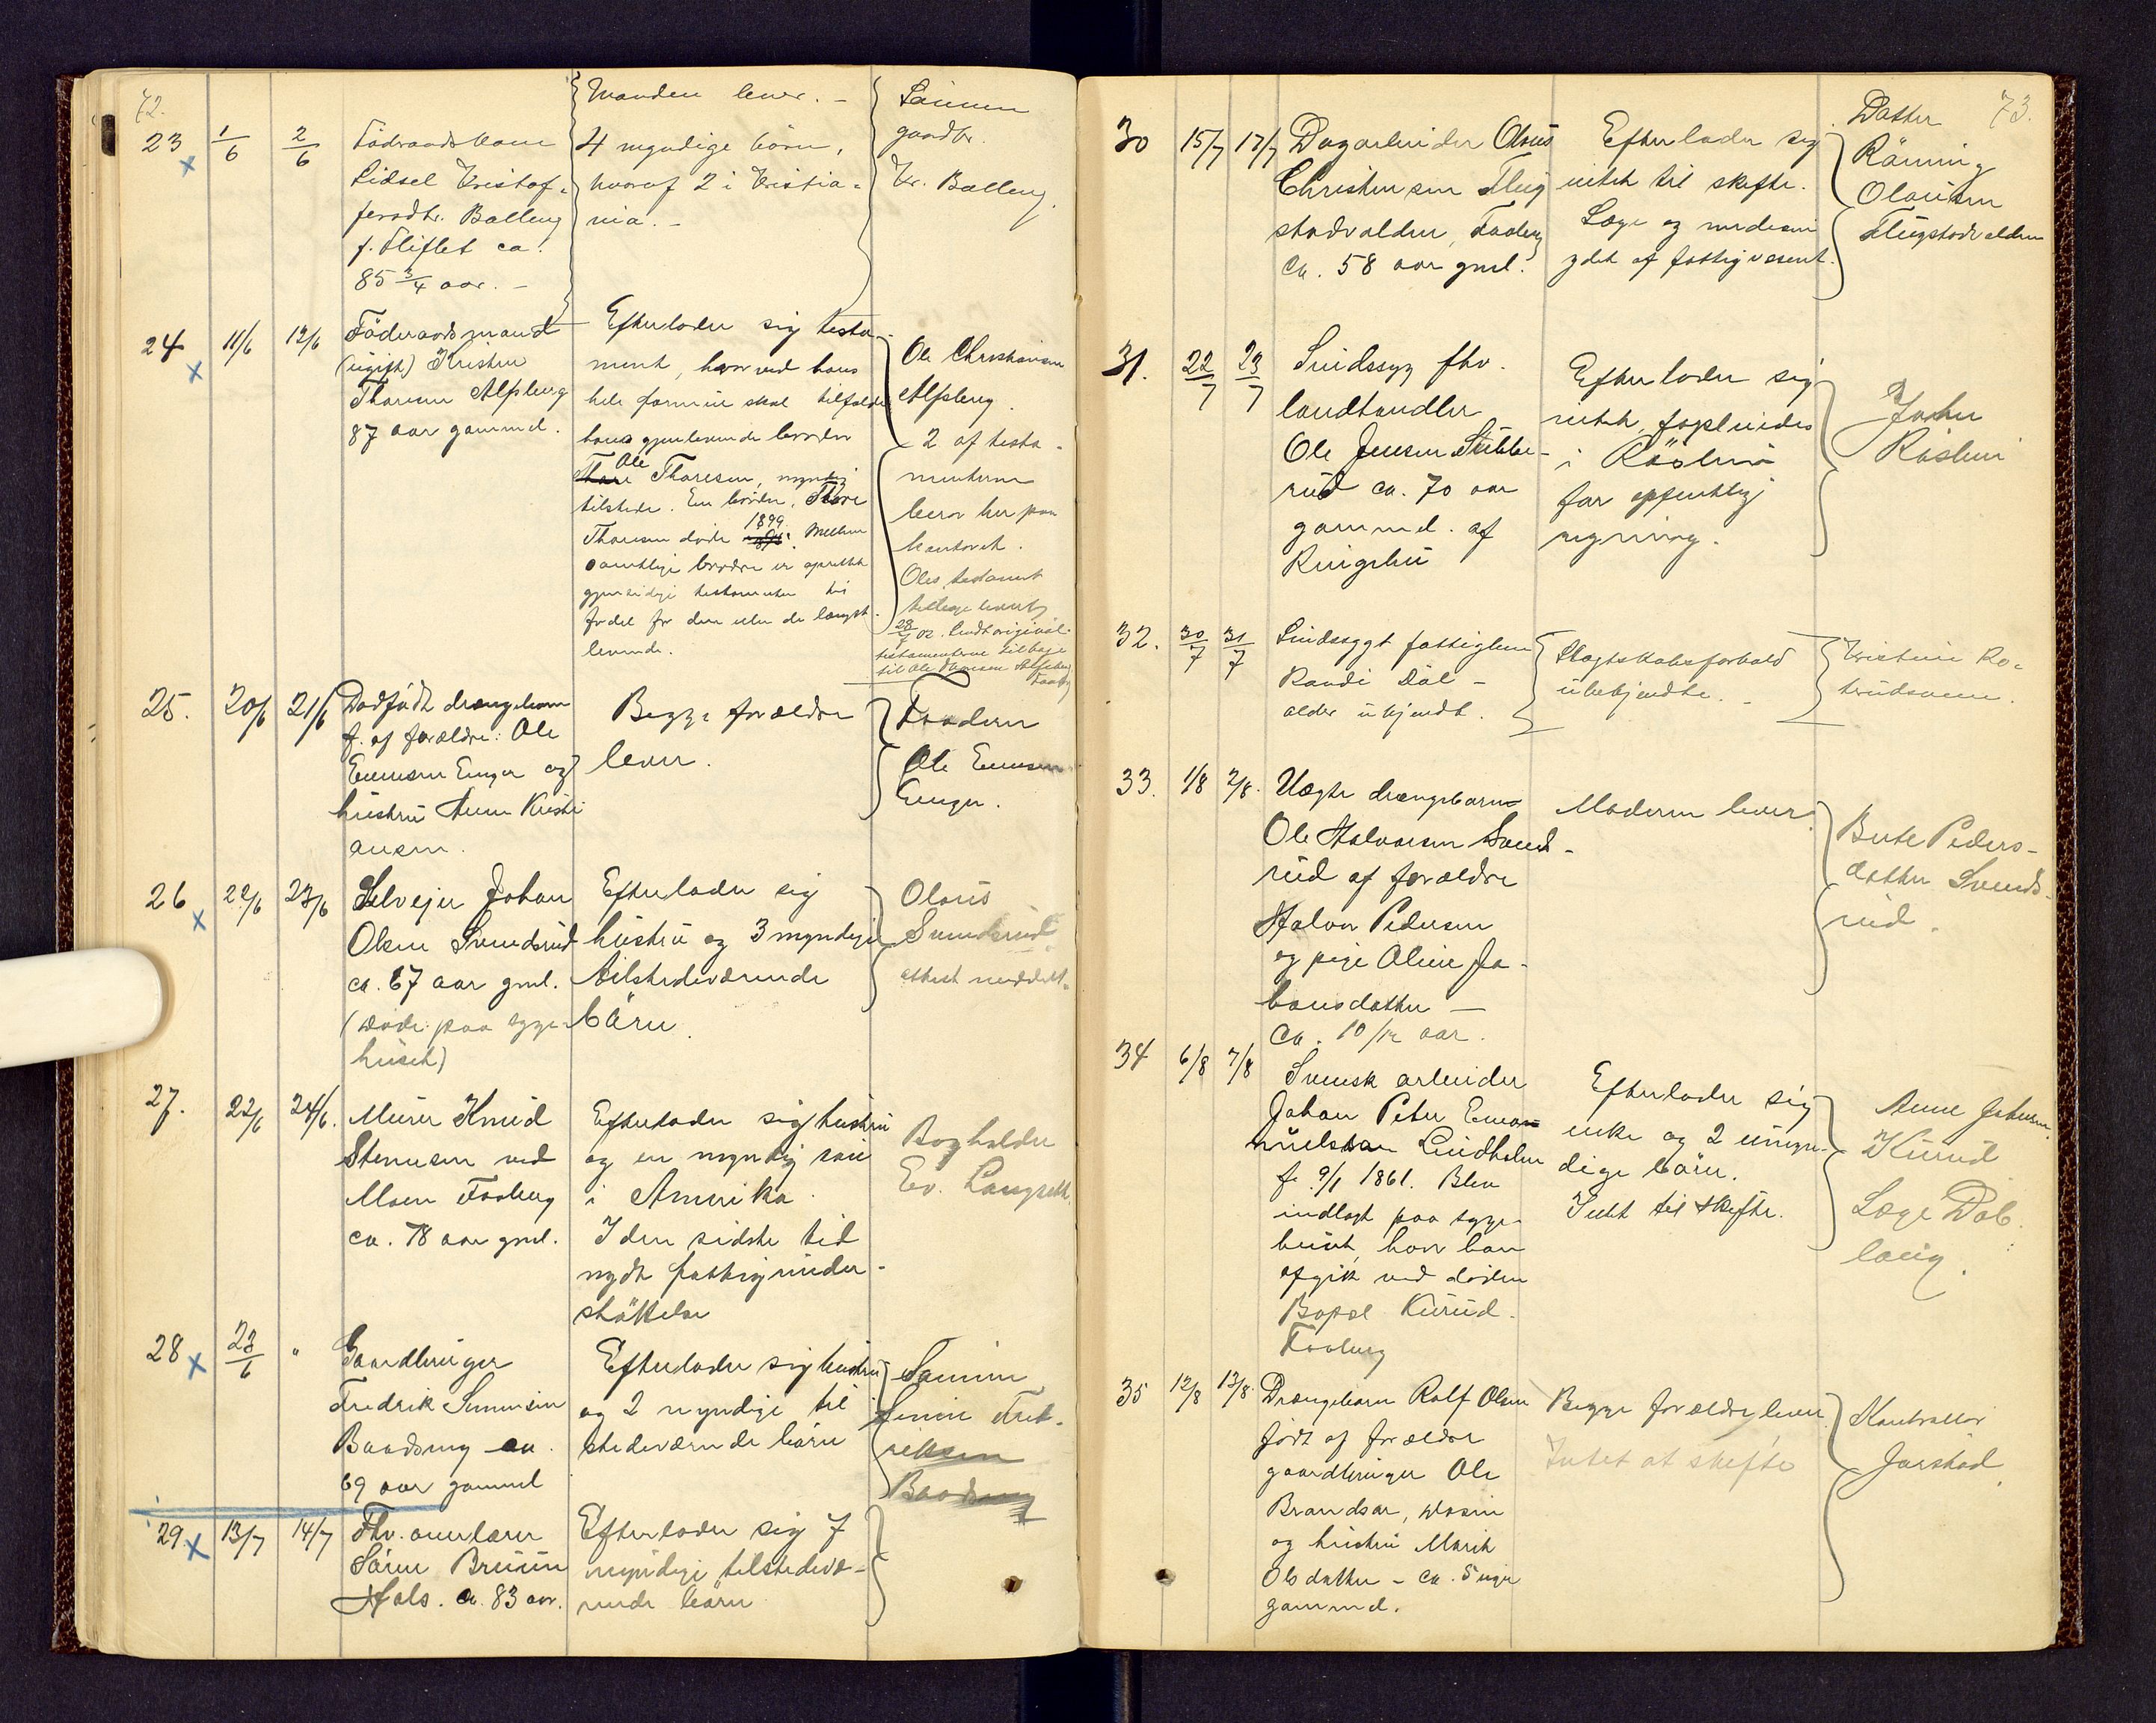 72.
23 1/6 2/6
Föderaadskone
Lidsel Kristof-
fersdtr. Balberg
f. Fliflet ca.
85 3/4 aar. -
Manden lever. -
4 myndige börn,
hvoraf 2 i Kristia-
nia. -
Sönnen
gaardbr.
Kr. Balberg.
24 11/6 12/6
Föderaadsmand
(ugift) Kristen
Thoresen Alfsberg
87 aar gammel.
Efterlader sig testa-
ment, hvorved hans
hele formue skal tilfalde
hans gjenlevende broder
Ole
Thoresen, myndig
tilstede. En broder, Thore
Thoresen döde 1899. Mellem
samtlige brödre er oprettet
gjensidige testamenter til
fordel for den eller de længst
levende.
Ole Christiansen
Alfsberg.
2 af testa-
menterne
beror her paa
kontoret.
Oles testament
tilbage leveret
28/7 02. Sendt original-
testamenterne tilbage
til Ole Thoresen Alfsberg
Faaberg
25. 20/6 21/6
Dödfödt drengebarn
f. af forældre: Ole
Evensen Enger og
hustru Anne Kristi-
ansen.
Begge forældre
lever.
Faderen
Ole Evensen
Enger.
26 22/6 23/6
Selveier Johan
Olsen Svendsrud
ca. 67 aar gml.
(Döde paa syge-
huset)
Efterlader sig
hustru og 3 myndige
tilstedeværende
börn.
Olaus
Svendsrud
attest meddelt.
27. 22/6 24/6.
Murer Knud
Stensen ved
Moen Faaberg
ca. 78 aar gml.
Efterlader sig hustru
og en myndig sön
i Amerika.
I den sidste tid
nydt fattigunder-
støttelse
Bogholder
Ev. Langseth
28 23/6 "
Gaardbruger
Fredrik Simensen
Baadseng ca.
69 aar gammel
Efterlader sig hustru
og 2 myndige til
stedeværende börn
Sönnen
Simen Fred-
riksen
Baadseng
29. 13/7 14/7
Fhv. overlærer
Sören Bruun
Hals. ca. 83 aar.
Efterlader sig 7
myndige tilstedevæ-
rende börn
73.
30 15/7 17/7
Dagarbeider Olaus
Christensen Flug
stadvolden, Faaberg
ca. 58 aar gml.
Efterlader sig
intet til skifte.
Læge og medesin
ydet af fattigvæsenet.
Datter
Rönnig
Olausen
Flugstadvolden
31. 22/7 23/7
Sindssyg fhv.
landhandler
Ole Jensen Stubbe-
rud ca. 70 aar
gammel. af
Ringebu
Efterlader sig
intet, forpleiedes
i Röslein
for offentlig
regning.
Johan
Röslien
32. 30/7 31/7
Sindssygt fattiglem
Randi Dal -
alder ukjendt.
Slægtskabsforhold
ubekjendte. -
Kristine Ro-
terudsveen.
33. 1/8 2/8.
Uægte drengebarn
Ole Halvorsen Svend-
rud af forældre
Halvor Pedersen
og pige Oline Jo-
hansdatter -
ca. 10/12 aar.
Moderen lever.
Berte Peders-
datter Svends-
rud.
34 6/8 7/8
Svensk arbeider
Johan Peter Ema-
nuelsson Lindholm
f. 9/1 1861. Blev
indlagt paa syge-
huset, hvor han
afgik ved döden
Bopæl Kurud.
Faaberg
Efterlader sig
enke og 2 umyn-
dige börn.
Intet til skifte.
Anne Johansen
Kurud
Læge Dæh-
lang.
35 12/8 13/8.
Drengebarn Rolf Olsen
födt af forældre
gaardbruger Ole
Brandsar, Mosin
og hustru Marit
Olsdatter - ca. 5 uger
gammel.
Begge forældre lever.
Intet at skifte
Kontrollör
Jarstad.